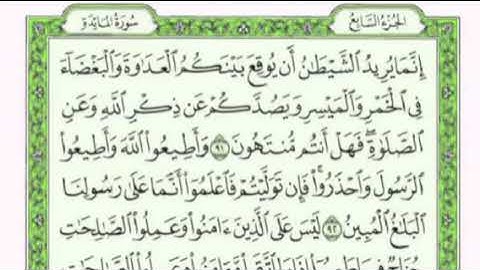 الجزء السابع
سورة المائدة
إِنَّمَا يُرِيدُ ٱلشَّيْطَٰنُ أَن يُوقِعَ بَيْنَكُمُ ٱلْعَدَٰوَةَ وَٱلْبَغْضَآءَ
فِى ٱلْخَمْرِ وَٱلْمَيْسِرِ وَيَصُدَّكُمْ عَن ذِكْرِ ٱللَّهِ وَعَنِ
ٱلصَّلَوٰةِ ۖ فَهَلْ أَنتُم مُّنتَهُونَ ٩١ وَأَطِيعُوا۟ ٱللَّهَ وَأَطِيعُوا۟
ٱلرَّسُولَ وَٱحْذَرُوا۟ ۚ فَإِن تَوَلَّيْتُمْ فَٱعْلَمُوٓا۟ أَنَّمَا عَلَىٰ رَسُولِنَا
ٱلْبَلَٰغُ ٱلْمُبِينُ ٩٢ لَيْسَ عَلَى ٱلَّذِينَ ءَامَنُوا۟ وَعَمِلُوا۟ ٱلصَّٰلِحَٰتِ